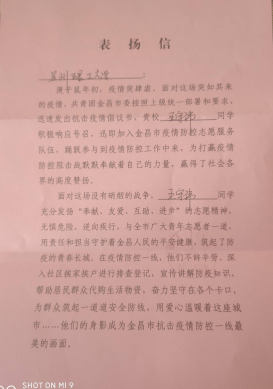 表扬信
兰州理工大学
庚子鼠年初，疫情突肆虐。面对这场突如其来
的疫情，共青团金昌市委按照上级统一部署和要求，
迅速发出抗击疫情倡议书，贵校 同学
积极响应号召，迅即加入金昌市疫情防控志愿服务
队伍，踊跃参与到疫情防控工作中来，为打赢疫情
防控阻击战默默奉献着自己的力量，赢得了社会各
界的高度赞扬。
面对这场没有硝烟的战争， 同学
充分发扬“奉献、友爱、互助、进步”的志愿精神，
无惧危险，逆向疾行，与全市广大青年志愿者一道，
用责任和担当守护着金昌人民的平安健康，筑起了防
疫的青春长城。在疫情防控一线，他们不辞辛劳，深
入社区挨家挨户进行排查登记，宣传讲解防疫知识，
帮助居民群众代购生活物资，奋力坚守在各个卡口，
为群众筑起一道道安全防线，用爱心温暖着这座城
市……他们的身影成为金昌市抗击疫情防控一线最
美的画面。
SHOT ON MI 9